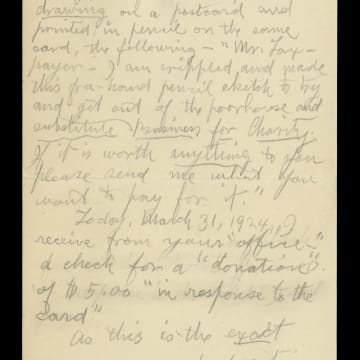 drawing on a postcard and
printed in pencil on the same
card, the following – "Mr. Tax-
payer – I am crippled and made
this free-hand pencil sketch to try
and get out of the poorhouse and
substitute Business for Charity.
If it is worth anything to you
please send me what you
want to pay for it."
Today, March 31, 1924, I
receive from your "office"
a check for a "donation"
of $5.00 "in response to the
card"
As this is the exact